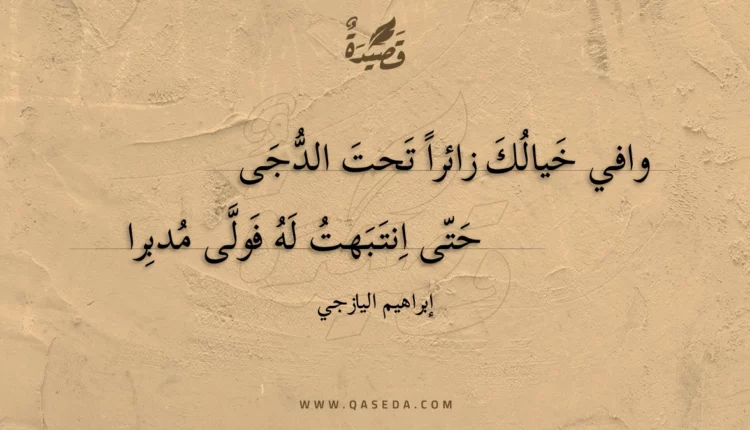 قَصِيدَةٌ
وافي خَيالُكَ زائراً تَحتَ الدُّجَى
حَتّى اِنتَبَهتُ لَهُ فَولَّى مُدبِرا
إبراهيم اليازجي
WWW.QASEDA.COM